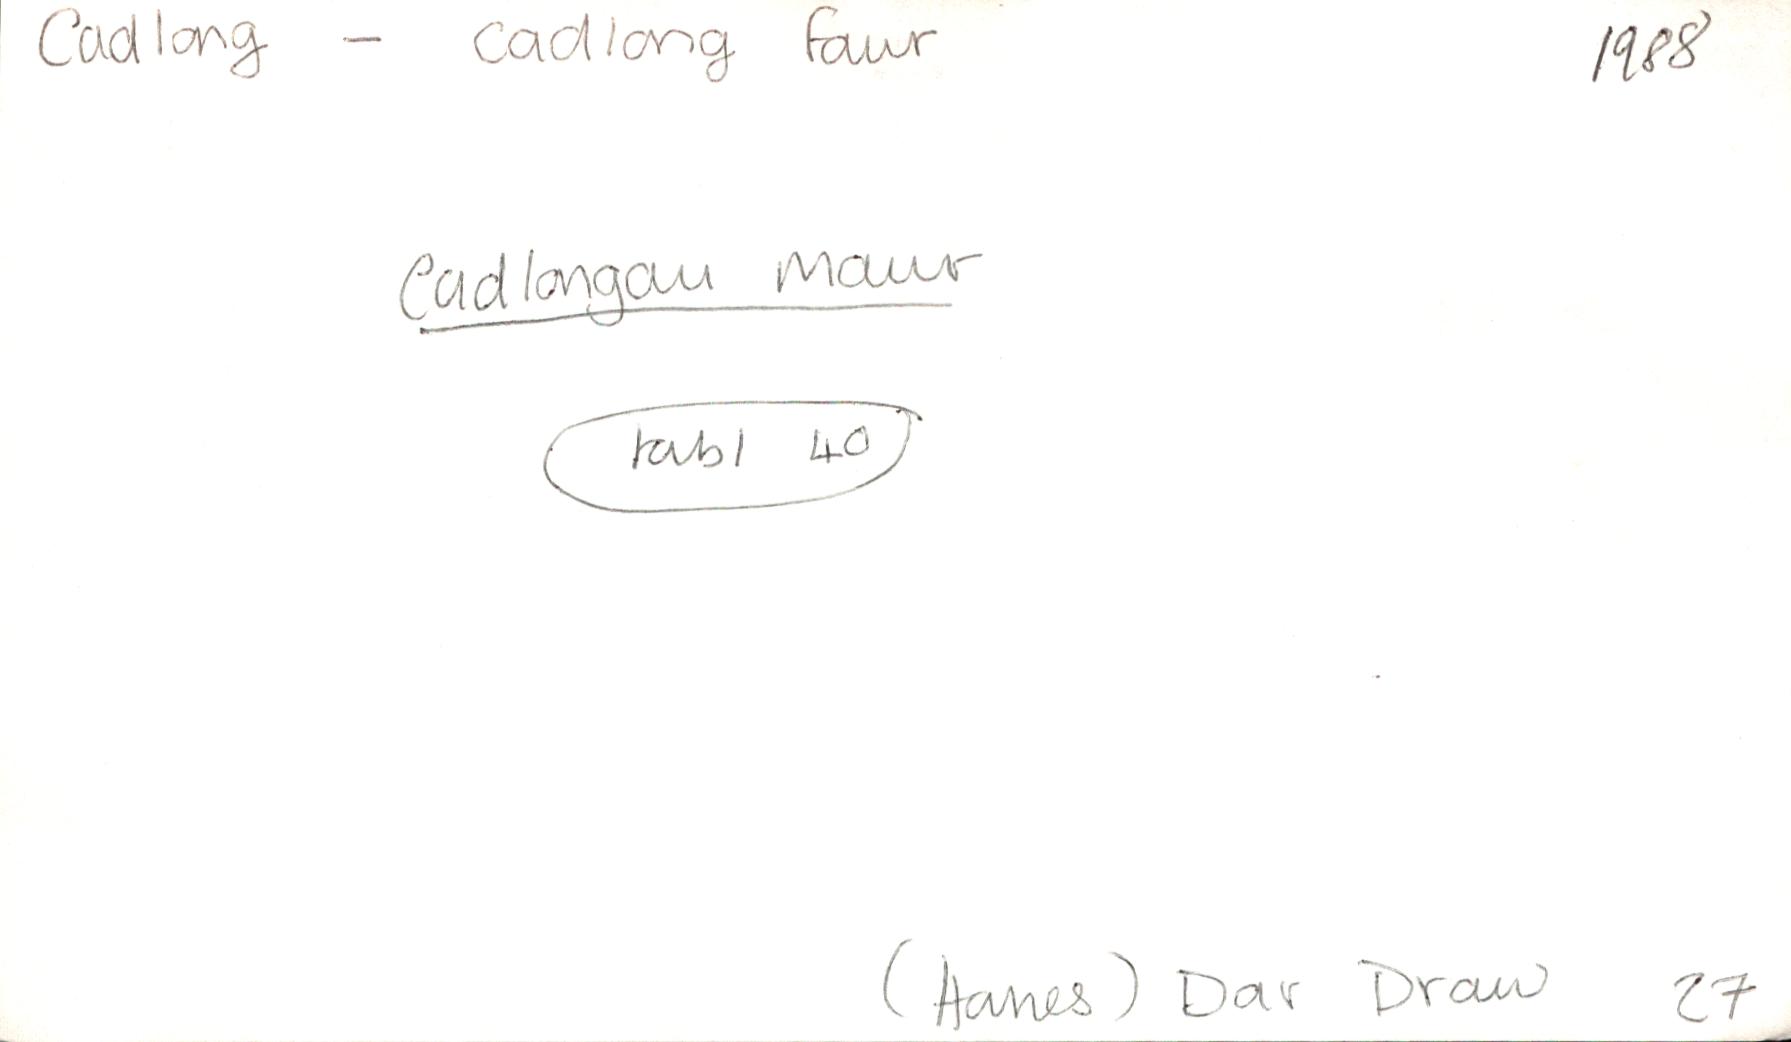 Cadlong - cadlong fawr 1988
Cadlongau Mawr
tabl 40
(Hanes) Dar Draw 27